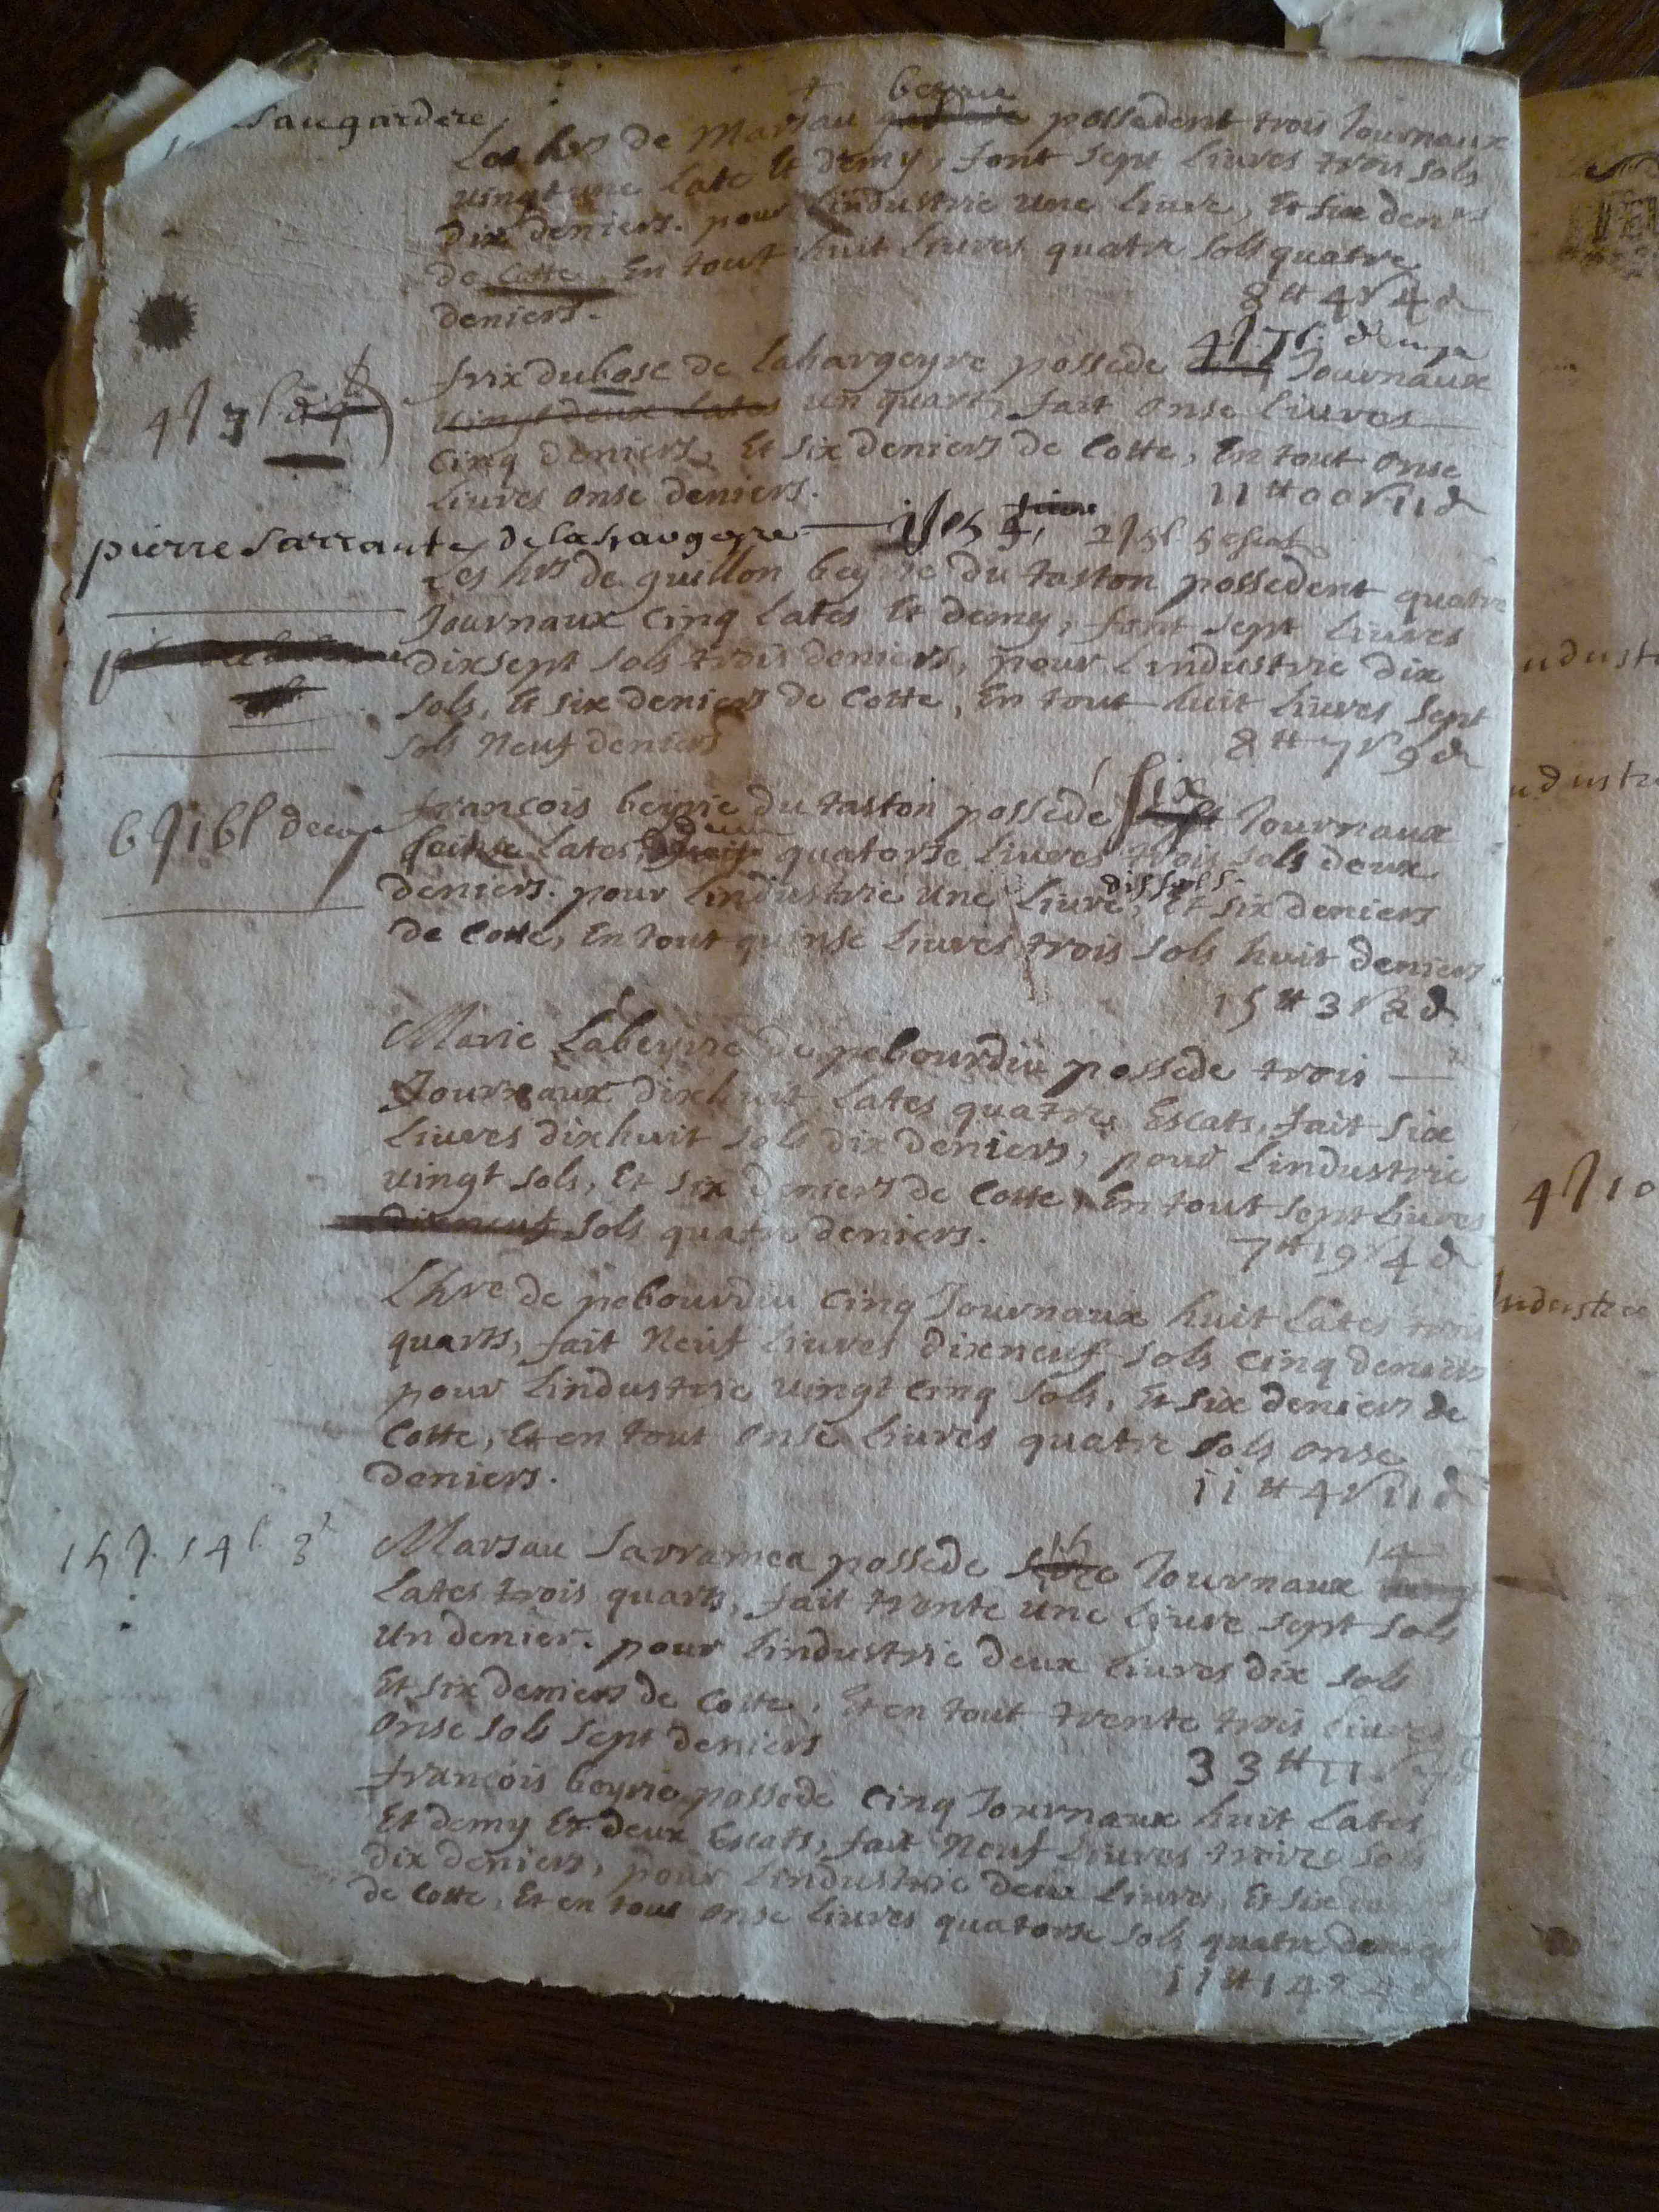 saugardere
beyrie
Les hrs de Marsau possedent trois Journaux
vingt une late Et demy, font sept liures trois sols
dix deniers. pour Lindustrie une liure, Et six denrs
de Cotte En tout huit liures quatre sols quatre
deniers.
8 tt 4 s 4 d
dubosc de Lahargeyre possede Journaux
vingt deux lates un quart, fait onse liures
Cinq deniers, Et six deniers de Cotte, En tout onse
liures onse deniers.
11 tt 00 s 11 d
pierre sarraute
Les hrs de guillon beyrie du taston possedent quatre
Journaux Cinq lates Et demy, font sept liures
dixsept sols trois deniers, pour Lindustrie dix
sols, Et six deniers de Cotte, En tout huit liures sept
sols neuf deniers
8 tt 7 s 9 d
six
françois beyrie du taston possede Journaux
lates, quatorse liures trois sols deux
deniers. pour Lindustrie une liure, Et six deniers
de Cotte, En tout quinse liures trois sols huit deniers
15 tt 3 s 8 d
Marie Labeyrie de pebourdiu possede trois
Journaux dixhuit lates quatre Escats, fait six
liures dixhuit sols dix deniers, pour Lindustrie
vingt sols, Et six deniers de Cotte, En tout sept liures
dixneuf sols quatre deniers.
7 tt 19 s 4 d
Lhre de pebourdiu Cinq Journaux huit lates trois
quarts, fait neuf liures dixneuf sols Cinq deniers
pour Lindustrie vingt Cinq sols, Et six deniers de
Cotte, Et en tout onse liures quatre sols onse
deniers.
11 tt 4 s 11 d
15 14
Marsau Sarramea possede Journaux
lates trois quarts, fait trente une liure sept sols
un denier. pour Lindustrie deux liures dix sols
Et six deniers de Cotte, Et en tout trente trois liures
onse sols sept deniers
33 tt 11 s 7 d
françois beyrie possede Cinq Journaux huit lates
Et demy Et deux Escats, fait neuf liures treize sols
dix deniers, pour Lindustrie deux liures, Et six
de Cotte, Et en tout onse liures quatorse sols quatre deniers
11 tt 14 s 4 d